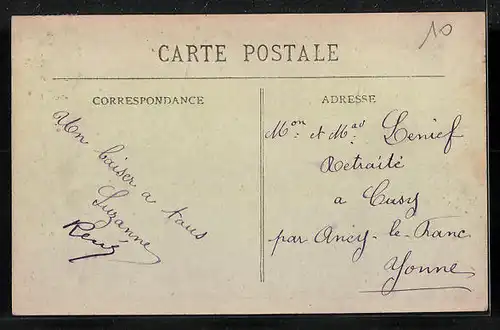 10
CARTE POSTALE
CORRESPONDANCE
Un baiser a tous
Suzanne
René
ADRESSE
Mon et Mad Lenief
Retraité
a Cusy
par Ancy-le-Franc
Yonne